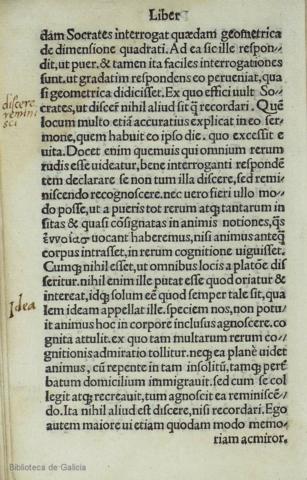 Liber
dam Socrates interrogat quædam geometrica
de dimensione quadrati. Ad ea sic ille respon⸗
dit, ut puer. & tamen ita faciles interrogationes
sunt. ut gradatim respondens eo perueniat, qua
si geometrica didicisset. Ex quo effici uult So⸗
crates, ut discere nihil aliud sit ꝗ̃ recordari. Quẽ
locum multo etiã accuratius explicat in eo ser⸗
mone, quem habuit eo ipso die. quo excessit e
uita. Docet enim quemuis qui omnium rerum
rudis esse uideatur, bene interroganti respondẽ
tem declarare se non tum illa discere, sed remi⸗
niscendo recognoscere. nec uero fieri ullo mo⸗
do posse, ut a pueris tot rerum atꝗ; tantarum in
sitas & quasi cõsignatas in animis notiones, ꝗs
ἐννοίας uocant haberemus, nisi animus anteꝗ̃
corpus intrasset, in rerum cognitione uiguisset.
Cumꝗ; nihil esset, ut omnibus locis a platõe dis
seritur. nihil enim ille putat esse quod oriatur &
intereat, idꝗ; solum eẽ quod semper tale sit, qua
lem ideam appellat ille. speciem nos, non potu⸗
it animus hoc in corpore inclusus agnoscere. co
gnita attulit. ex quo tam multarum rerum co⸗
gnitionis admiratio tollitur. neꝗ; ea planè uidet
animus, cũ repente in tam insolitũ, tamꝗ; pertur
batum domicilium immigrauit. sed cum se col
legit atꝗ; recreauit, tum agnoscit ea reminiscẽ⸗
do. Ita nihil aliud est discere, nisi recordari. Ego
autem maiore ui etiam quodam modo memo⸗
riam acmiror.
discere
remini
sci
Idea
Biblioteca de Galicia